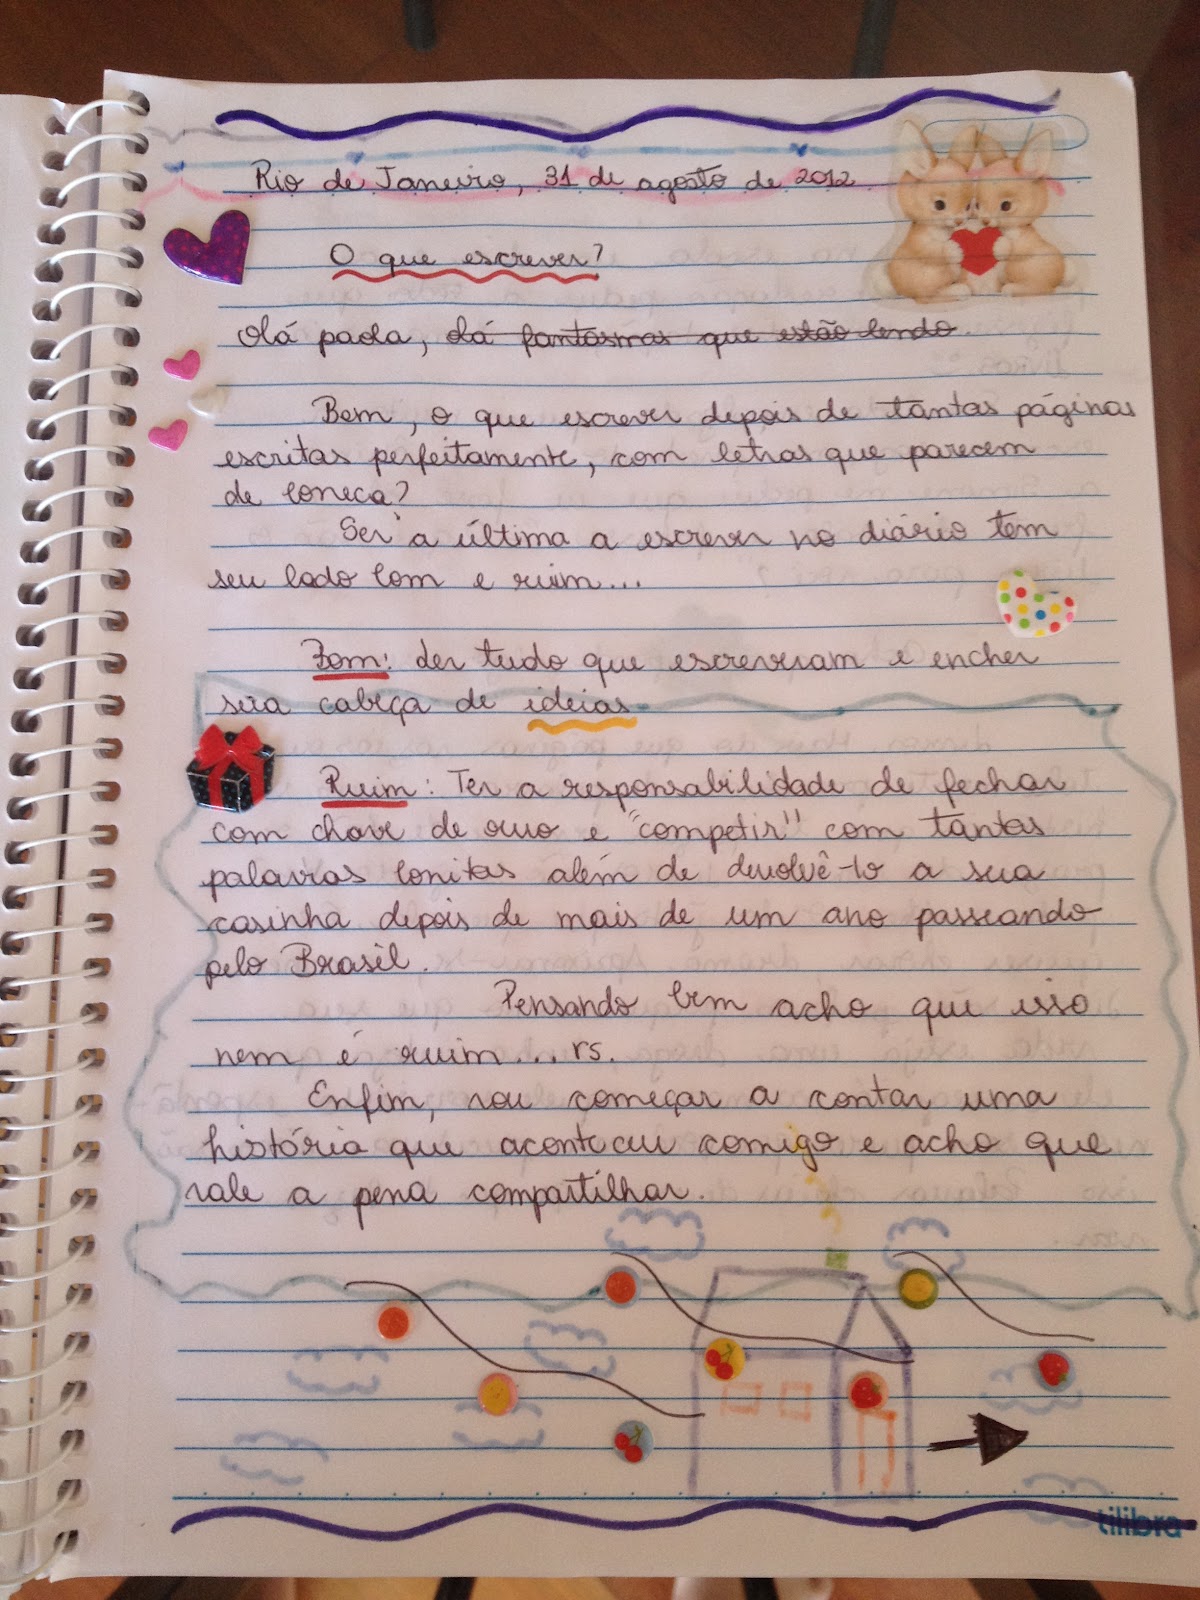 Rio de Janeiro, 31 de agosto de 2012
O que escrever?
Olá paola, olá fantasmas que estão lendo.
Bem, o que escrever depois de tantas páginas
escritas perfeitamente, com letras que parecem
de boneca?
Ser a última a escrever no diário tem
seu lado bom e ruim...
Bom: ler tudo que escreveram e encher
sua cabeça de ideias
Ruim: Ter a responsabilidade de fechar
com chave de ouro e "competir" com tantas
palavras bonitas além de devolvê-lo a sua
casinha depois de mais de um ano passeando
pelo Brasil.
Pensando bem acho que isso
nem é ruim...rs.
Enfim, vou começar a contar uma
história que aconteceu comigo e acho que
vale a pena compartilhar.
tilibra